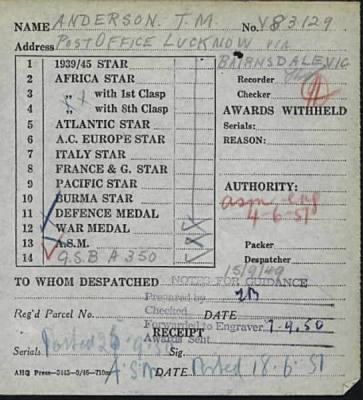 NAME ANDERSON. J.M. No. V83129
Address Post Office Lucknow via
BAIRNSDALE VIC
1 1939/45 STAR
2 AFRICA STAR
3 „ with 1st Clasp
4 „ with 8th Clasp
5 ATLANTIC STAR
6 A.C. EUROPE STAR
7 ITALY STAR
8 FRANCE & G. STAR
9 PACIFIC STAR
10 BURMA STAR
11 DEFENCE MEDAL
12 WAR MEDAL
13 A.S.M.
14 G.S.B A 350
Recorder
Checker
AWARDS WITHHELD
Serials:
REASON:
AUTHORITY:
asm eng
4-6-51
Packer
Despatcher
15/9/49
TO WHOM DESPATCHED NOTED FOR GUIDANCE
Prepared by
Checked
Reg'd Parcel No. DATE
Forwarded to Engraver 7.9.50
RECEIPT Awards Sent
Serials Posted 25.9.50 Sig.
ASM DATE Posted 18.6.51
AHQ Press—3143—3/46—710m